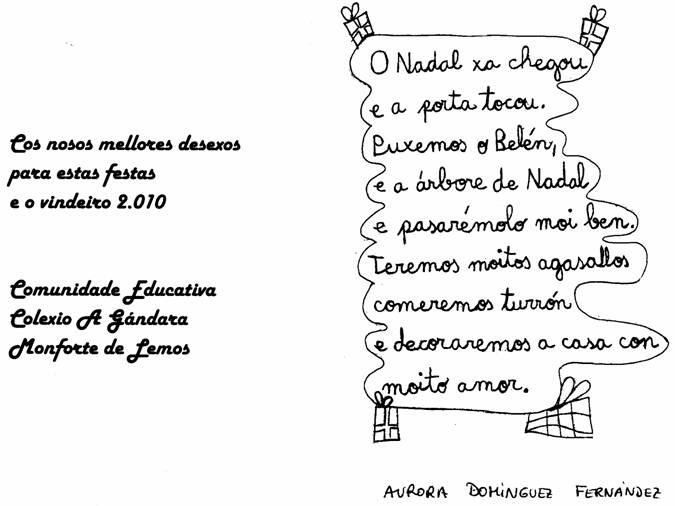 Cos nosos mellores desexos
para estas festas
e o vindeiro 2.010
Comunidade Educativa
Colexio A Gándara
Monforte de Lemos
O Nadal xa chegou
e a porta tocou.
Puxemos o Belén,
e a árbore de Nadal
e pasarémolo moi ben.
Teremos moitos agasallos
comeremos turrón
e decoraremos a casa con
moito amor.
AURORA DOMÍNGUEZ FERNÁNDEZ